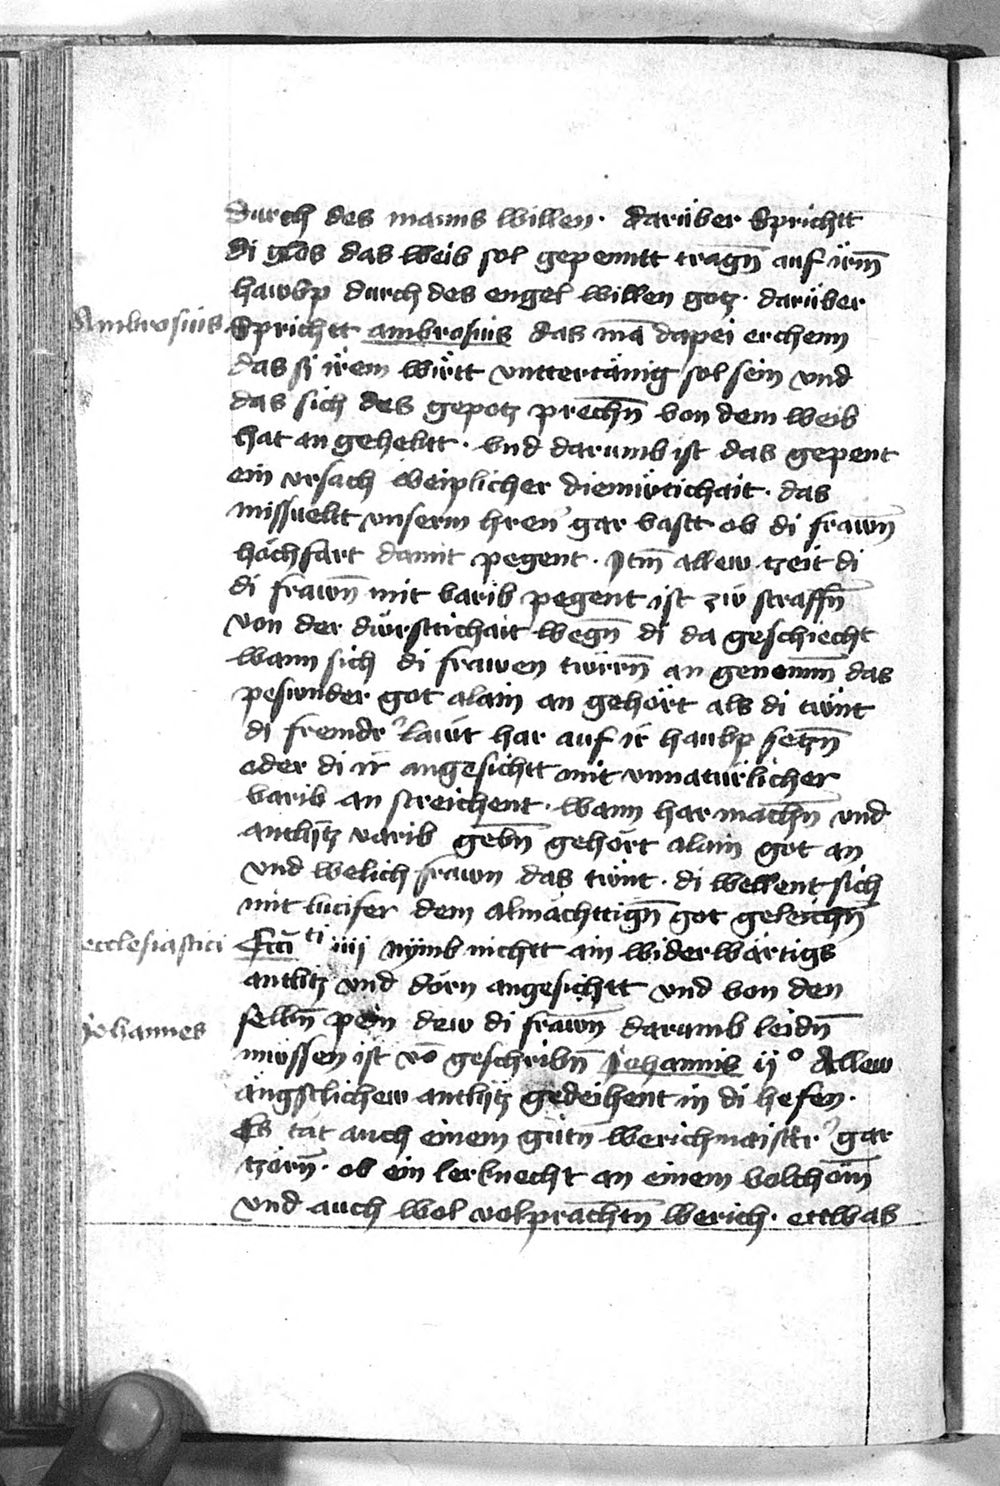 durch des manns willen · darüber Sprichtt
di glos das weib sol gepenntt tragn̄ auf irm̄
hawbp durch des engel willen gotz · darüber
Ambrosius
Sprichtt ambrosius das mā dapei erchenn
das si irem wirtt vnttertänig sol sein vnd
das sich des gepotz prechn̄ von dem weib
hat an gehebtt · vnd darumb ist das gepent
ein vrsach weiplicher diemütichait · das
missuelt vnserm hren gar vastt ob di frawn̄
hächfart damit pegent · Itm̄ allew tzeit di
di frawn̄ mit varib pegent ist zw straffn̄
von der dürsttichait wegn̄ di da geschiecht
wann sich di frauen türrn̄ an genomm̄ das
pesunder got alain an gehört als di tünt
di fremdr lawt har auf ir haubp setzn̄
oder di ir angesichtt mit vnnatürlicher
varib an streichent · wann har machn̄ vnd
antlytz varib gebn̄ gehört alain got an
vnd welich frawn das tünt · di wellent sich
mit lucifer dem almächttign̄ got geleichn̄
ecclesiastici
Ecc̄i ti iiij nymb nichtt ain widerwärtigs
antlitz vnd dörn angesichtt vnd von den
Johannes
selbn̄ pein dew di frawn̄ darumb leidn̄
müssen ist vō geschribn̄ Johannis ij o Allew
ängstlichew antlytz gedeihent in di hefen ·
Es tät auch einem gütn̄ werichmaister gar
tzorn̄ · ob ein lerknecht an einem volchöm̄
vnd auch wol volprachtn̄ werich · ettwas